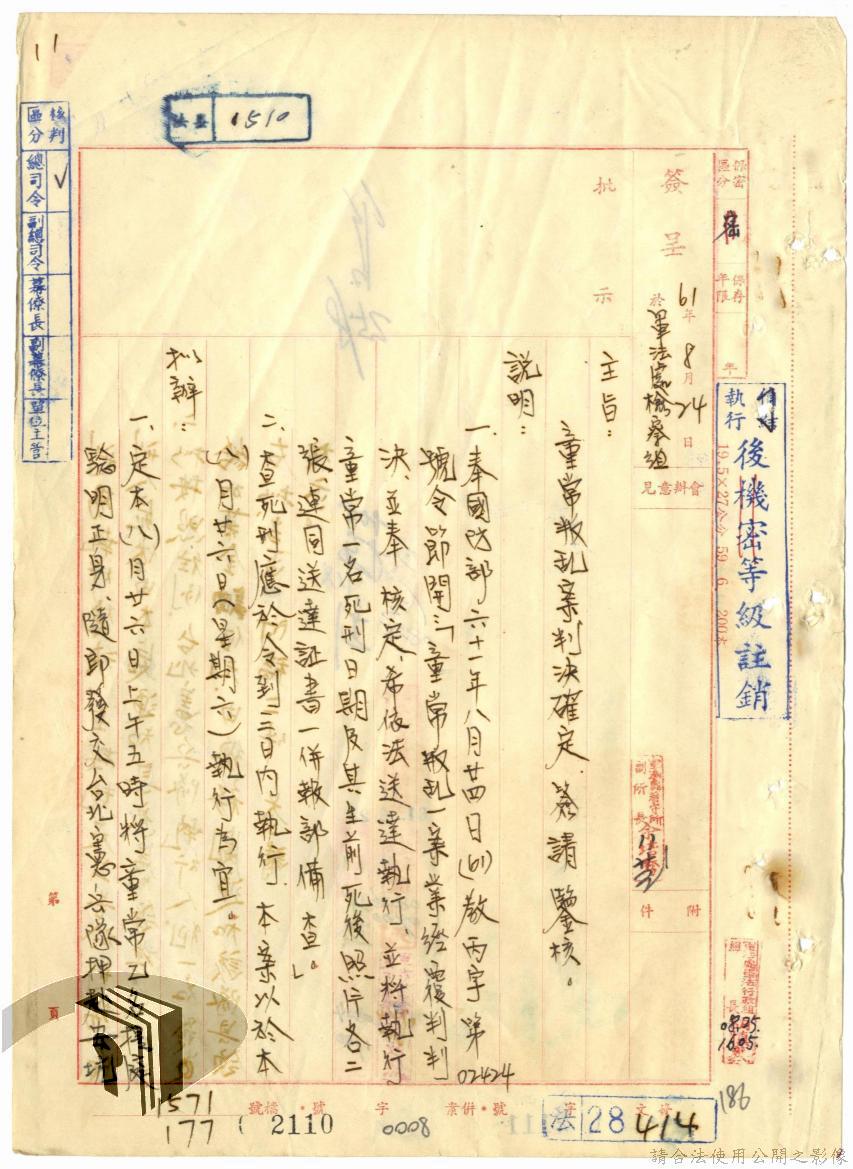 保密區分
密
保存年限
年
俟執行後機密等級註銷
19.5×27公分 59. 6. 200本
簽呈
61年8月24日
於軍法處檢察組
會辦意見
副所長
附件
批示
主旨：
童常叛乱案判決確定，簽請鑒核。
說明：
一、奉國防部六十一年八月廿四日(61)教丙字第02424
號令節開：「童常叛乱一案業經覆判判
決，並奉 核定，希依法送達執行，並將執行
童常一名死刑日期及其生前死後照片各二
張，連同送達証書一併報部備查。」
二、查死刑應於令到三日內執行，本案以於本
(八)月廿六日(星期六)執行為宜。
拟辦：
一、定本(八)月廿六日上午五時將童常乙名提庭
驗明正身，隨即發交台北憲兵隊押赴安坑
核判區分
總司令 ✓
副總司令
幕僚長
副幕僚長
單位主管
11
1510
第 頁
收文 字 28 414
法
併案·號 字 0008
檔·號 2110
1571
177
186
08.05.
16.05.
請合法使用公開之影像